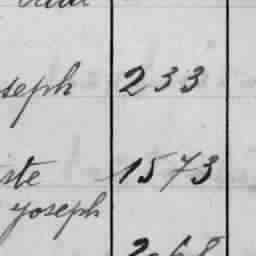 seph 233
ste 1573
yoseph